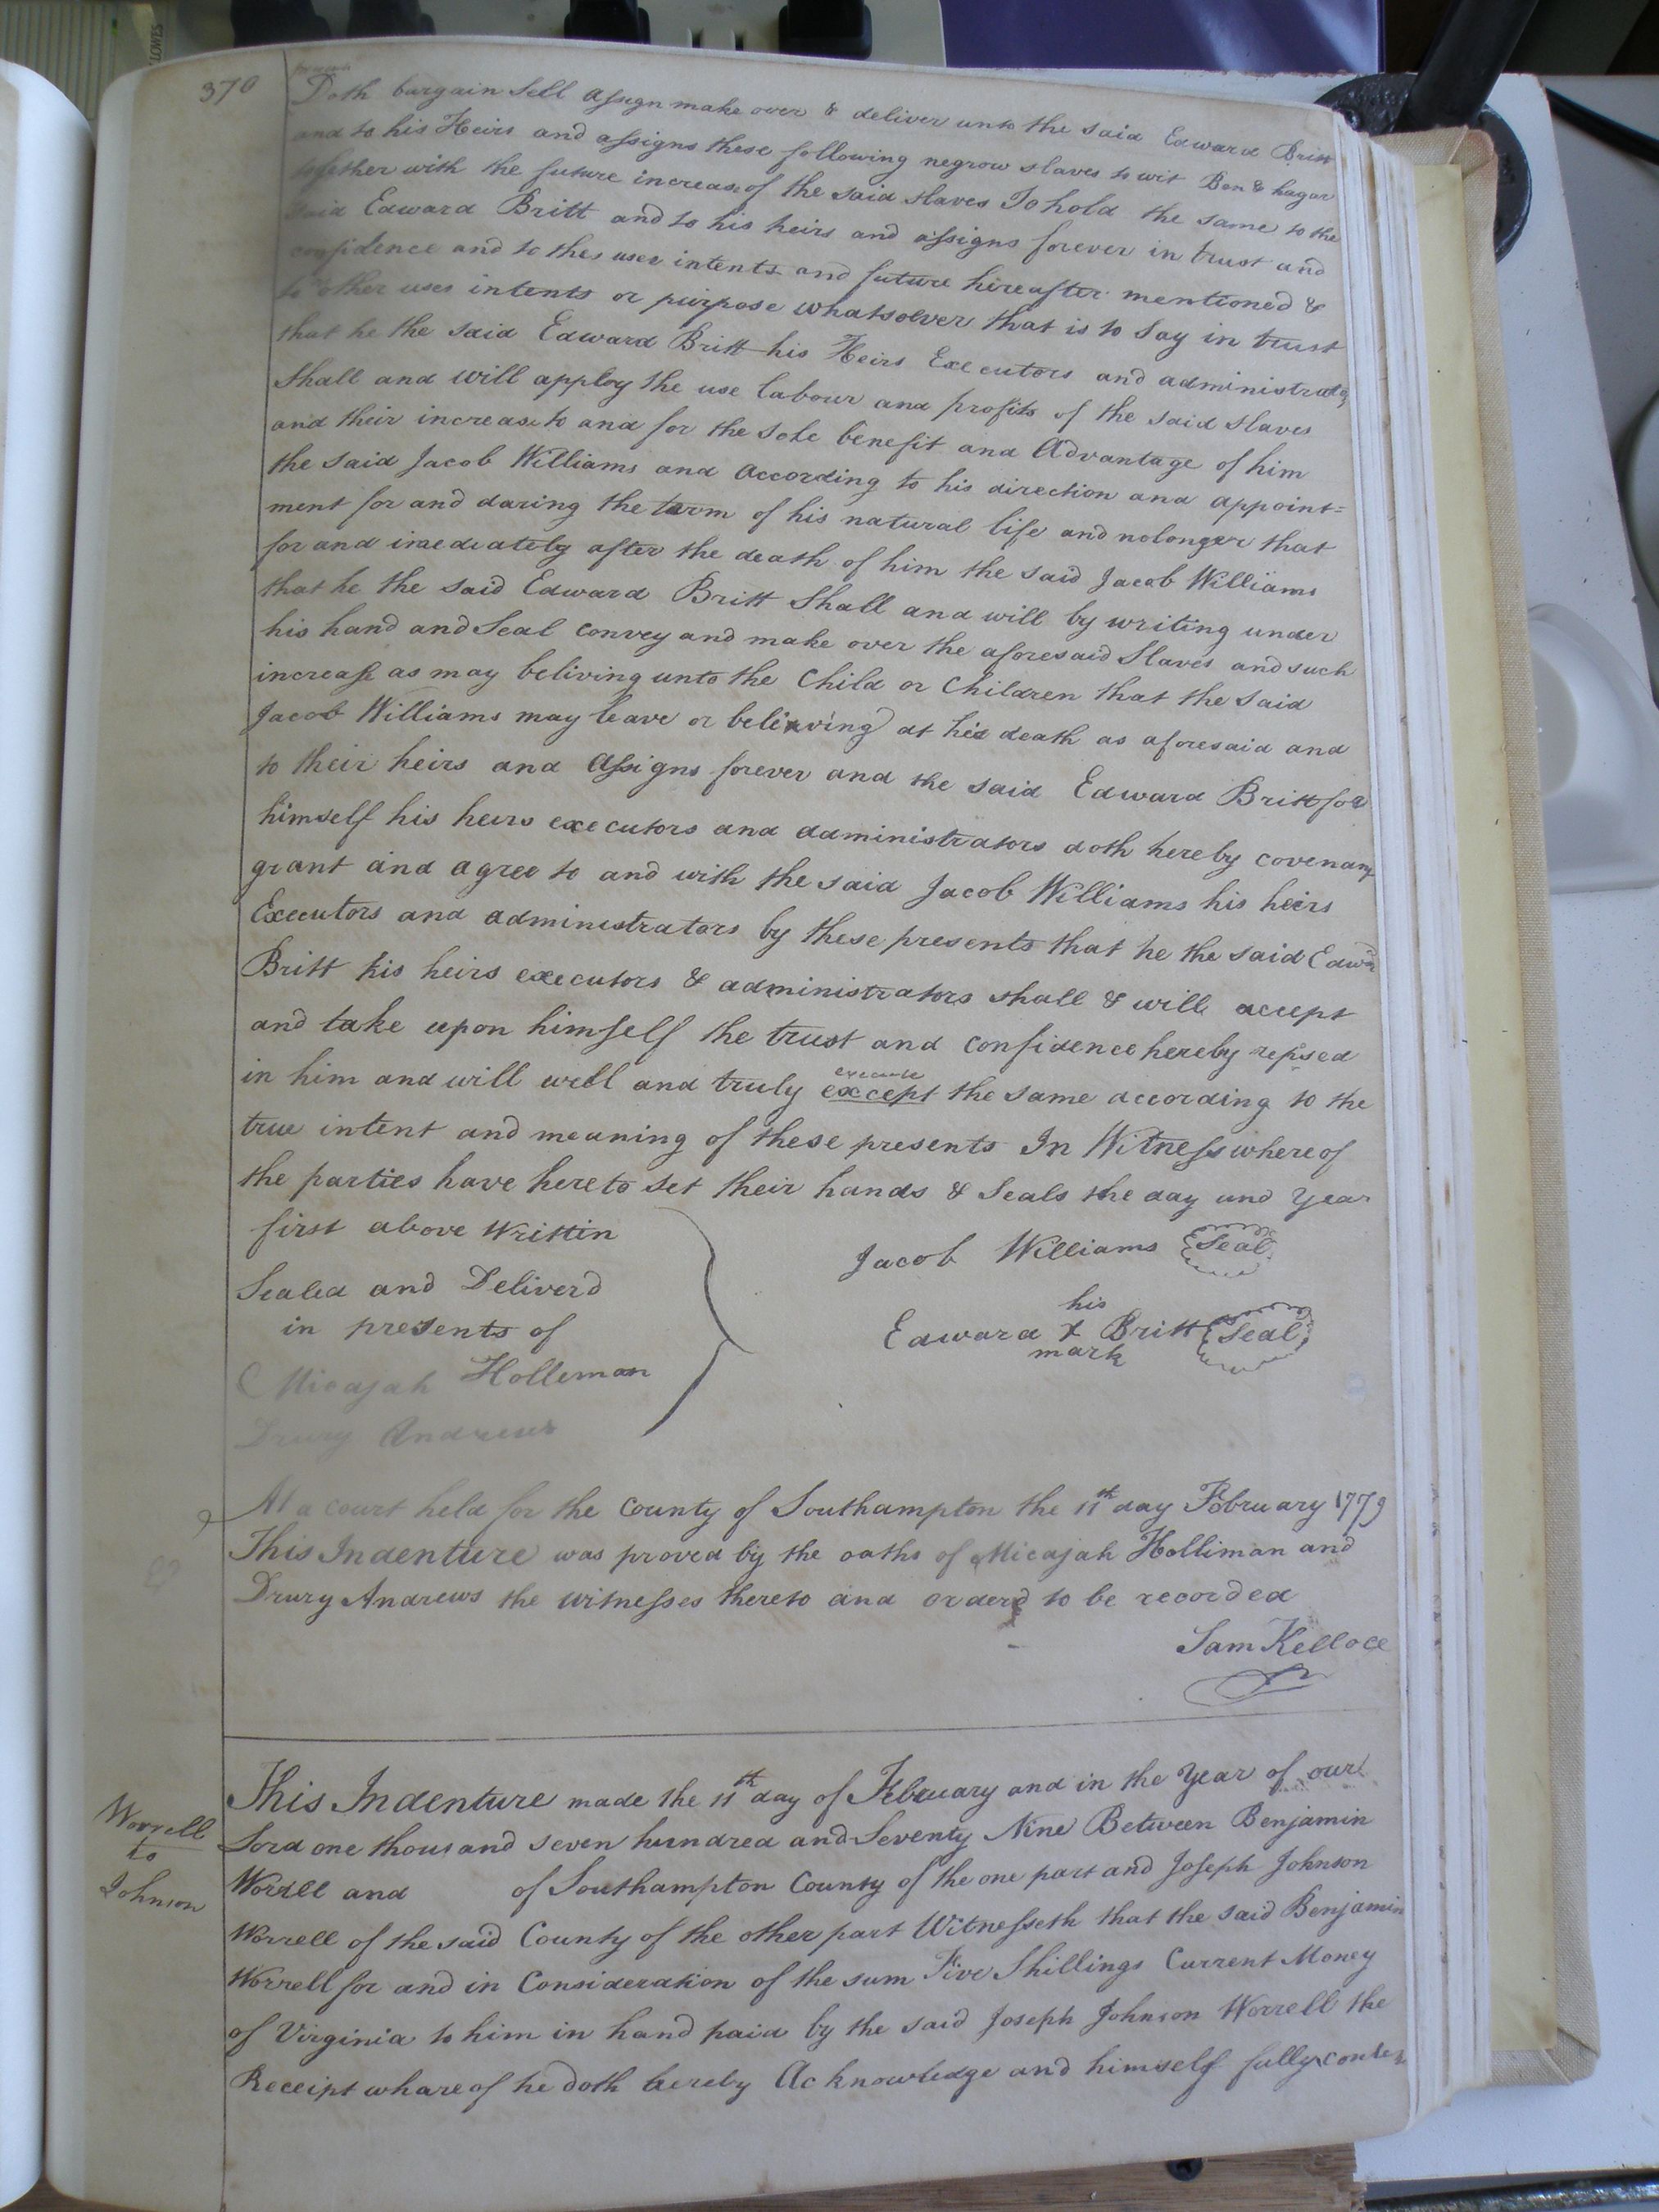 370
Doth bargain Sell assign make over & deliver unto the said Edward Britt
and to his Heirs and assigns these following negrow slaves to wit Ben & hagar
together with the future increase of the said slaves To hold the same to the
said Edward Britt and to his heirs and assigns forever in trust and
confidence and to thes uses intents and future hereafter mentioned &
to other uses intents or purpose whatsoever that is to Say in trust
that he the said Edward Britt his Heirs Executors and administrators
Shall and will apploy the use labour and profits of the said slaves
and their increase to and for the sole benefit and Advantage of him
the said Jacob Williams and according to his direction and appoint=
ment for and daring the term of his natural life and nolonger that
for and imediately after the death of him the said Jacob Williams
that he the said Edward Britt Shall and will by writing under
his hand and Seal convey and make over the aforesaid Slaves and such
increase as may beliving unto the Child or Children that the said
Jacob Williams may leave or beliving at his death as aforesaid and
to their heirs and Assigns forever and the said Edward Britt for
himself his heirs executors and administrators doth hereby covenant
grant and agree to and with the said Jacob Williams his heirs
Executors and administrators by these presents that he the said Edwd
Britt his heirs executors & administrators shall & will accept
and take upon himself the trust and confidence hereby repsed
execute
in him and will well and truly except the same according to the
true intent and meaning of these presents In Witness whereof
the parties have hereto set their hands & Seals the day and Year
first above Writtin
Sealed and Deliverd
in presents of
Micajah Holleman
Drury Andrews
Jacob Williams Seal
his
Edward X Britt Seal
mark
At a court held for the County of Southampton the 11th day February 1779
This Indenture was proved by the oaths of Micajah Holliman and
Drury Andrews the witnesses thereto and orderd to be recorded
Sam Kelloce
Worrell
to
Johnson
This Indenture made the 11th day of February and in the Year of our
Lord one thousand seven hundred and Seventy Nine Between Benjamin
Worrell and of Southampton County of the one part and Joseph Johnson
Worrell of the said County of the other part Witnesseth that the said Benjamin
Worrell for and in Consideration of the sum Five Shillings Current Money
of Virginia to him in hand paid by the said Joseph Johnson Worrell the
Receipt whareof he doth hereby Acknowledge and himself fully